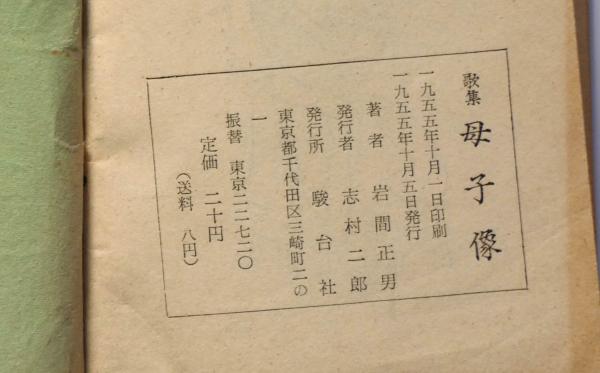 歌集 母子像
一九五五年十月一日印刷
一九五五年十月五日発行
著者 岩間正男
発行者 志村二郎
発行所 駿台社
東京都千代田区三崎町二の
一
振替 東京二二七二〇
定価 二十円
(送料 八円)